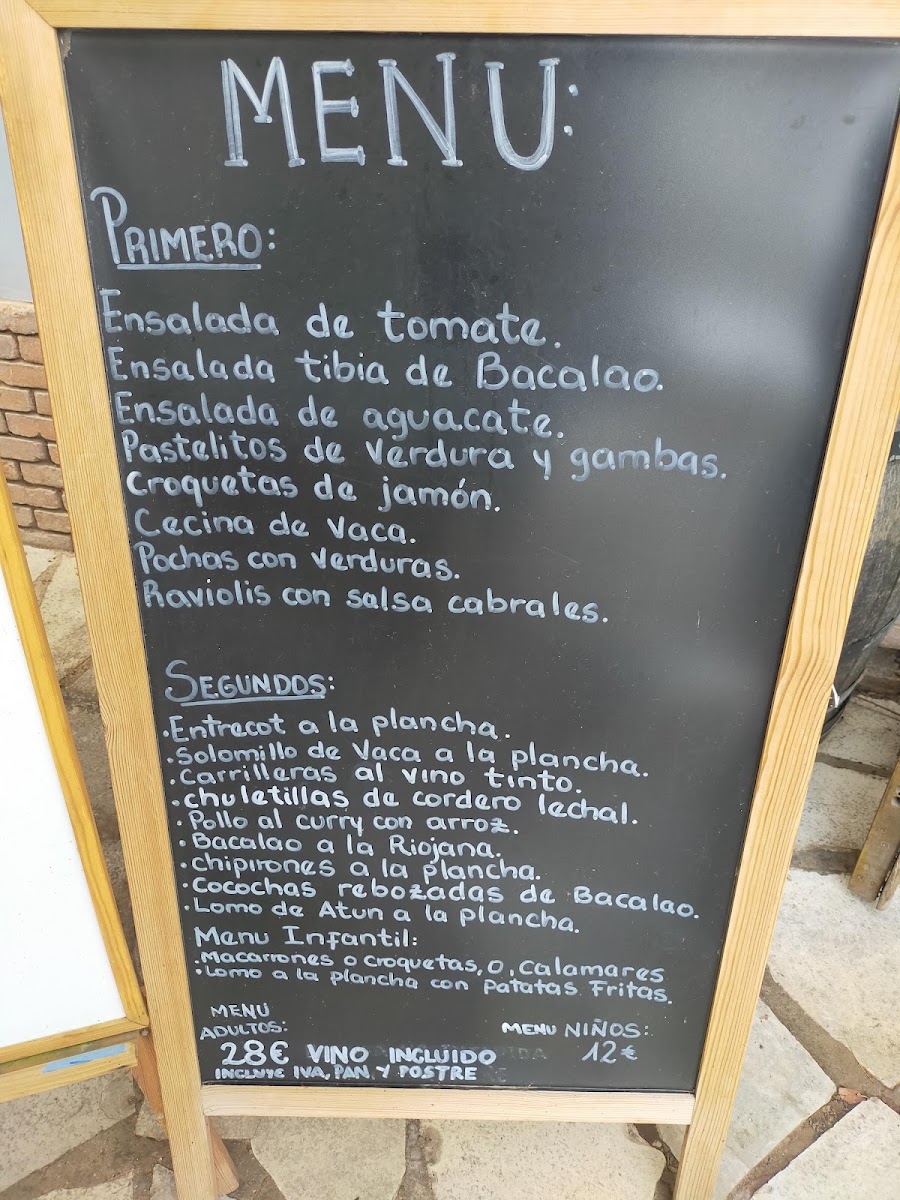 MENU:
PRIMERO:
Ensalada de tomate.
Ensalada tibia de Bacalao.
Ensalada de aguacate.
Pastelitos de verdura y gambas.
Croquetas de jamón.
Cecina de vaca.
Pochas con verduras.
Raviolis con salsa cabrales.
SEGUNDOS:
·Entrecot a la plancha.
·Solomillo de Vaca a la plancha.
·Carrilleras al vino tinto.
·chuletillas de cordero lechal.
·Pollo al curry con arroz.
·Bacalao a la Riojana.
·chipirones a la plancha.
·Cocochas rebozadas de Bacalao.
·Lomo de Atun a la plancha.
Menu Infantil:
·Macarrones o croquetas, o, calamares
·Lomo a la plancha con patatas Fritas.
MENU ADULTOS:
MENU NIÑOS:
28€ VINO INCLUIDO
12€
INCLUYE IVA, PAN, Y POSTRE